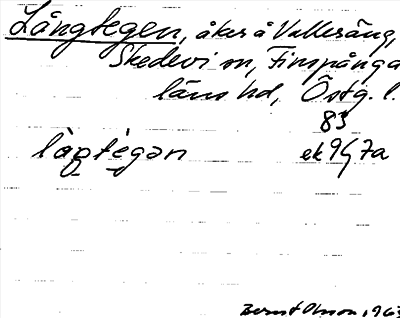 Långtegen, åker å Vallersäng,
Skedevi sn, Finspånga
läns hd, Östg. l.
83
làŋtègən ek 9G7a
Bernt Olsson, 1963